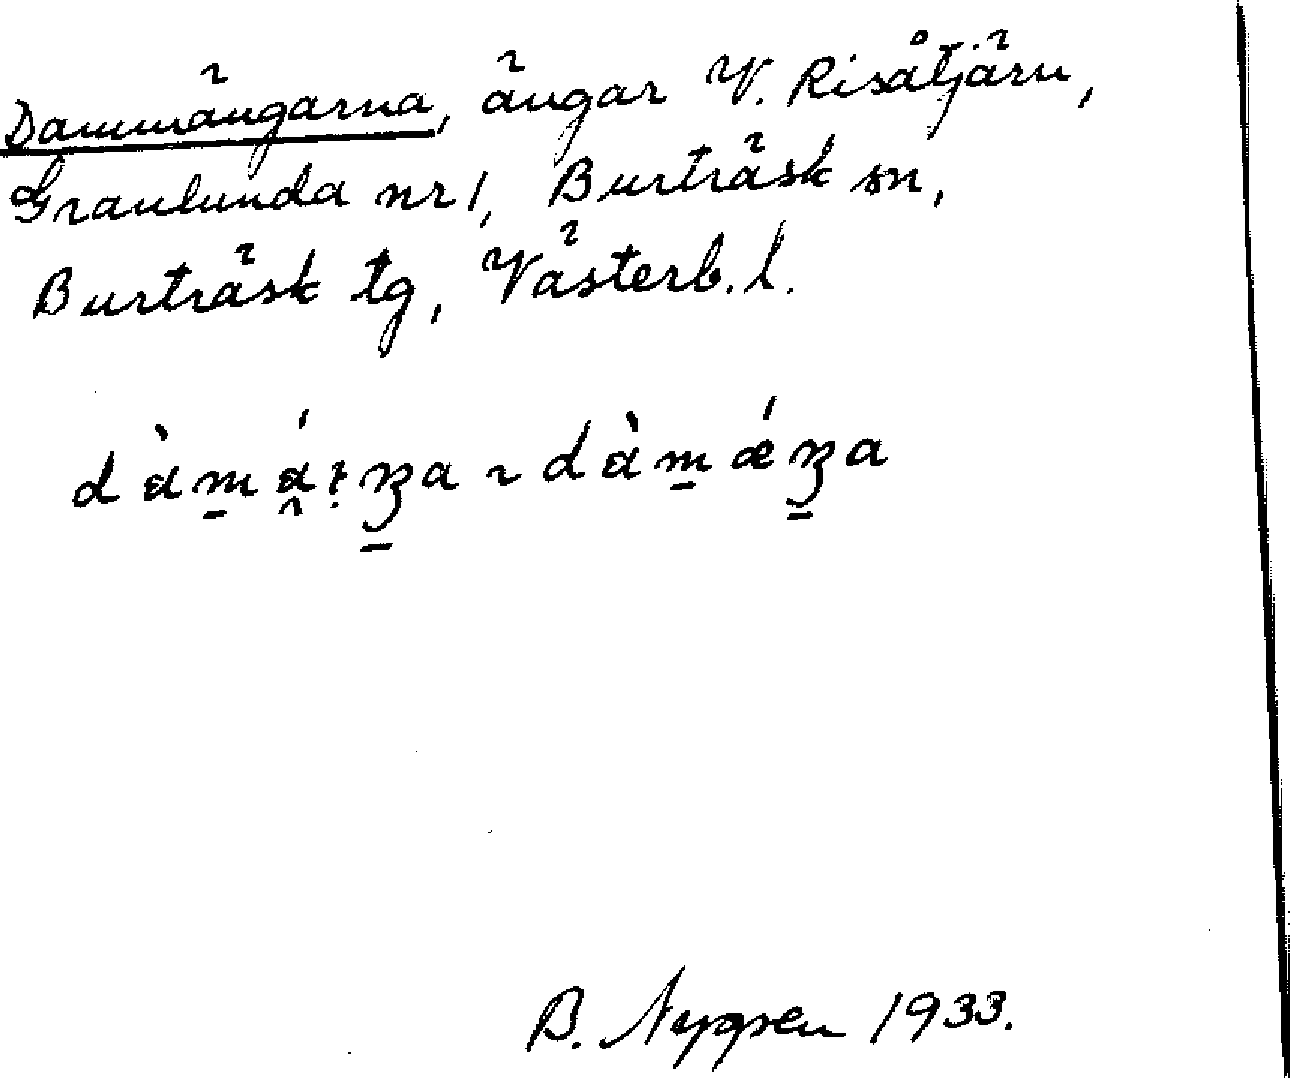 Dammängarna, ängar V. Risåtjärn,
Granlunda nr 1, Burträsk sn,
Burträsk tg, Västerb. l.
dàmáṛŋa ~ dàmǽŋa
B. Nygren 1933.